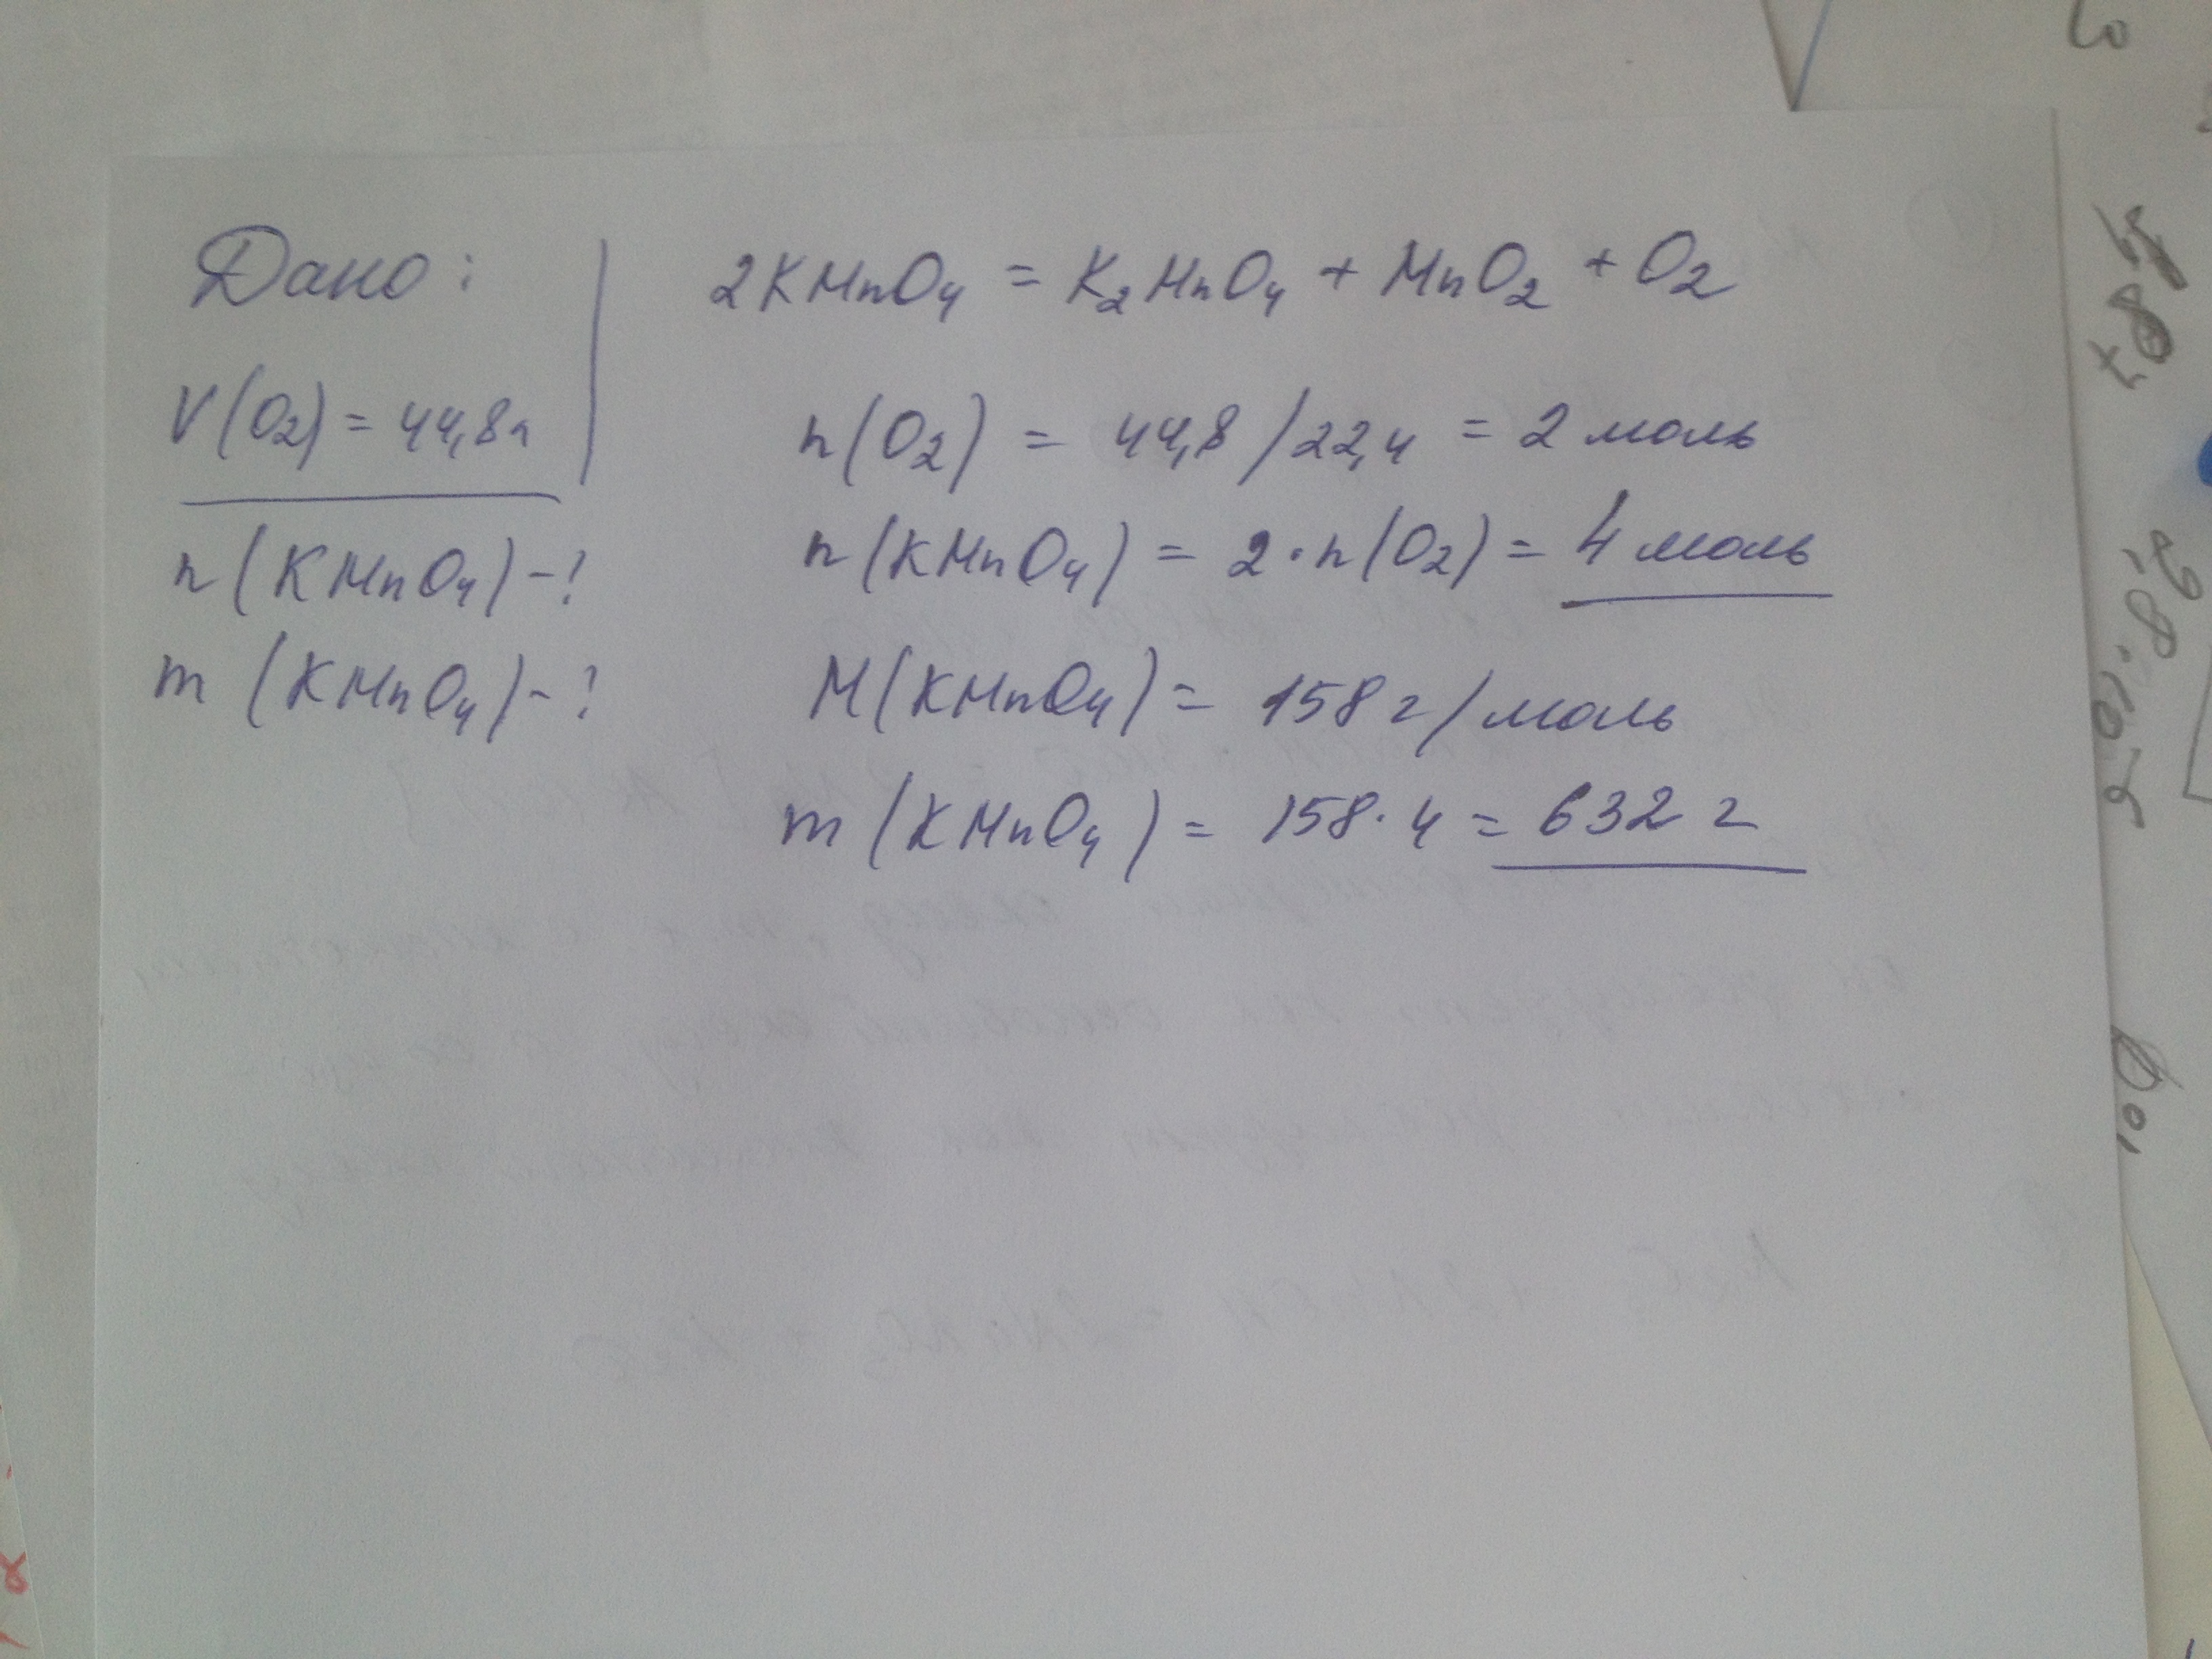 Дано:
V(O₂) = 44,8л
n(KMnO₄) - ?
m (KMnO₄) - ?
2KMnO₄ = K₂MnO₄ + MnO₂ + O₂
n(O₂) = 44,8/22,4 = 2 моль
n(KMnO₄) = 2·n(O₂) = 4 моль
M(KMnO₄) = 158 г/моль
m (KMnO₄) = 158·4 = 632 г